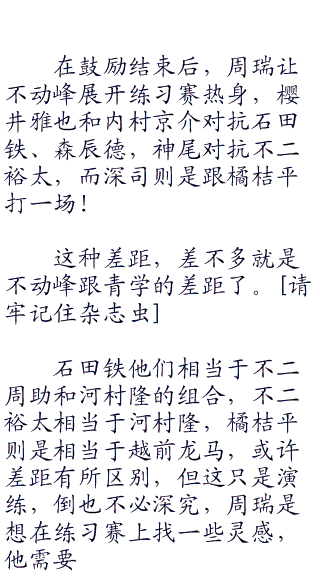 在鼓励结束后，周瑞让
不动峰展开练习赛热身，樱
井雅也和内村京介对抗石田
铁、森辰德，神尾对抗不二
裕太，而深司则是跟橘桔平
打一场！
这种差距，差不多就是
不动峰跟青学的差距了。[请
牢记住杂志虫]
石田铁他们相当于不二
周助和河村隆的组合，不二
裕太相当于河村隆，橘桔平
则是相当于越前龙马，或许
差距有所区别，但这只是演
练，倒也不必深究，周瑞是
想在练习赛上找一些灵感，
他需要